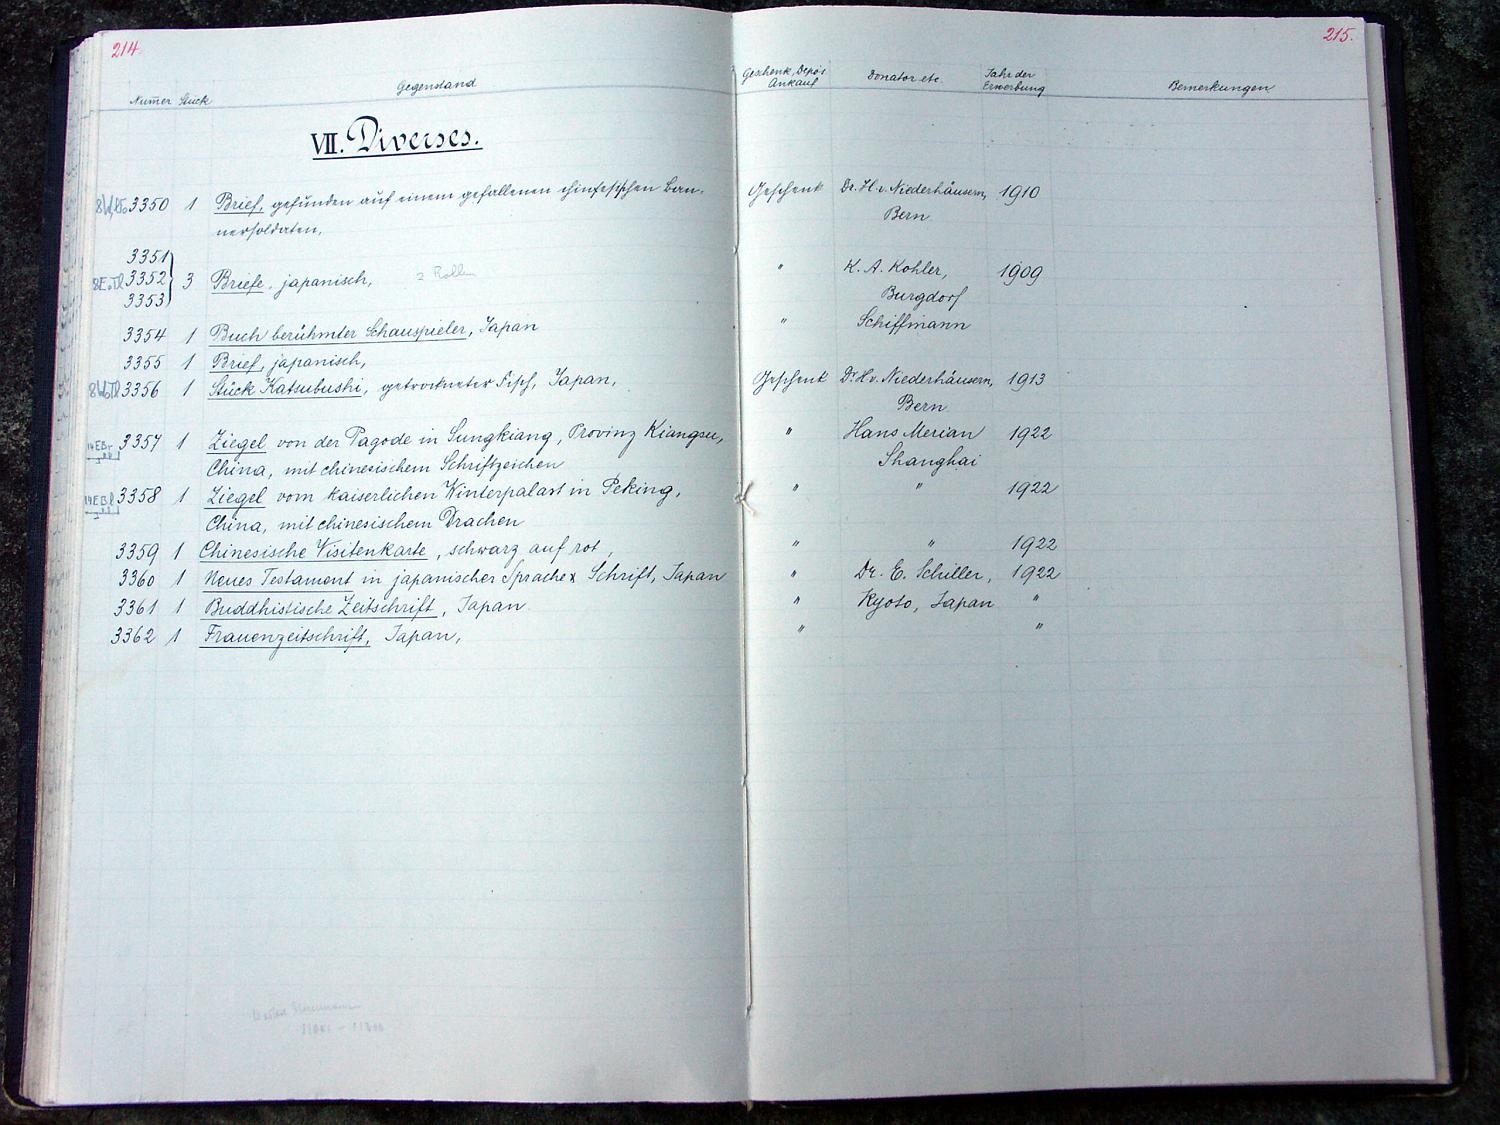 214.
215.
Numer Stück Gegenstand Geschenk, Depôt Ankauf Donator etc. Jahr der Erwerbung Bemerkungen
VII. Diverses.
3350 1 Brief, gefunden auf einem gefallenen chinesischen Geschenk Dr. H. v. Niederhäusern, 1910
nersoldaten, Bern
3351
3352 3 Briefe, japanisch, 2 Rollen " K. A. Kohler, 1909
3353 Burgdorf
3354 1 Buch berühmter Schauspieler, Japan " Schiffmann
3355 1 Brief, japanisch,
3356 1 Stück Katsubushi, getrockneter Fisch, Japan, Geschenk Dr. H. v. Niederhäusern, 1913
Bern
3357 1 Ziegel von der Pagode in Sungkiang, Provinz Kiangsu, " Hans Merian 1922
China, mit chinesischem Schriftzeichen Shanghai
3358 1 Ziegel vom kaiserlichen Winterpalast in Peking, " " 1922
China, mit chinesischem Drachen
3359 1 Chinesische Visitenkarte, schwarz auf rot, " " 1922
3360 1 Neues Testament in japanischer Sprache & Schrift, Japan " Dr. E. Schiller, 1922
3361 1 Buddhistische Zeitschrift, Japan " Kyoto, Japan "
3362 1 Frauenzeitschrift, Japan, " "